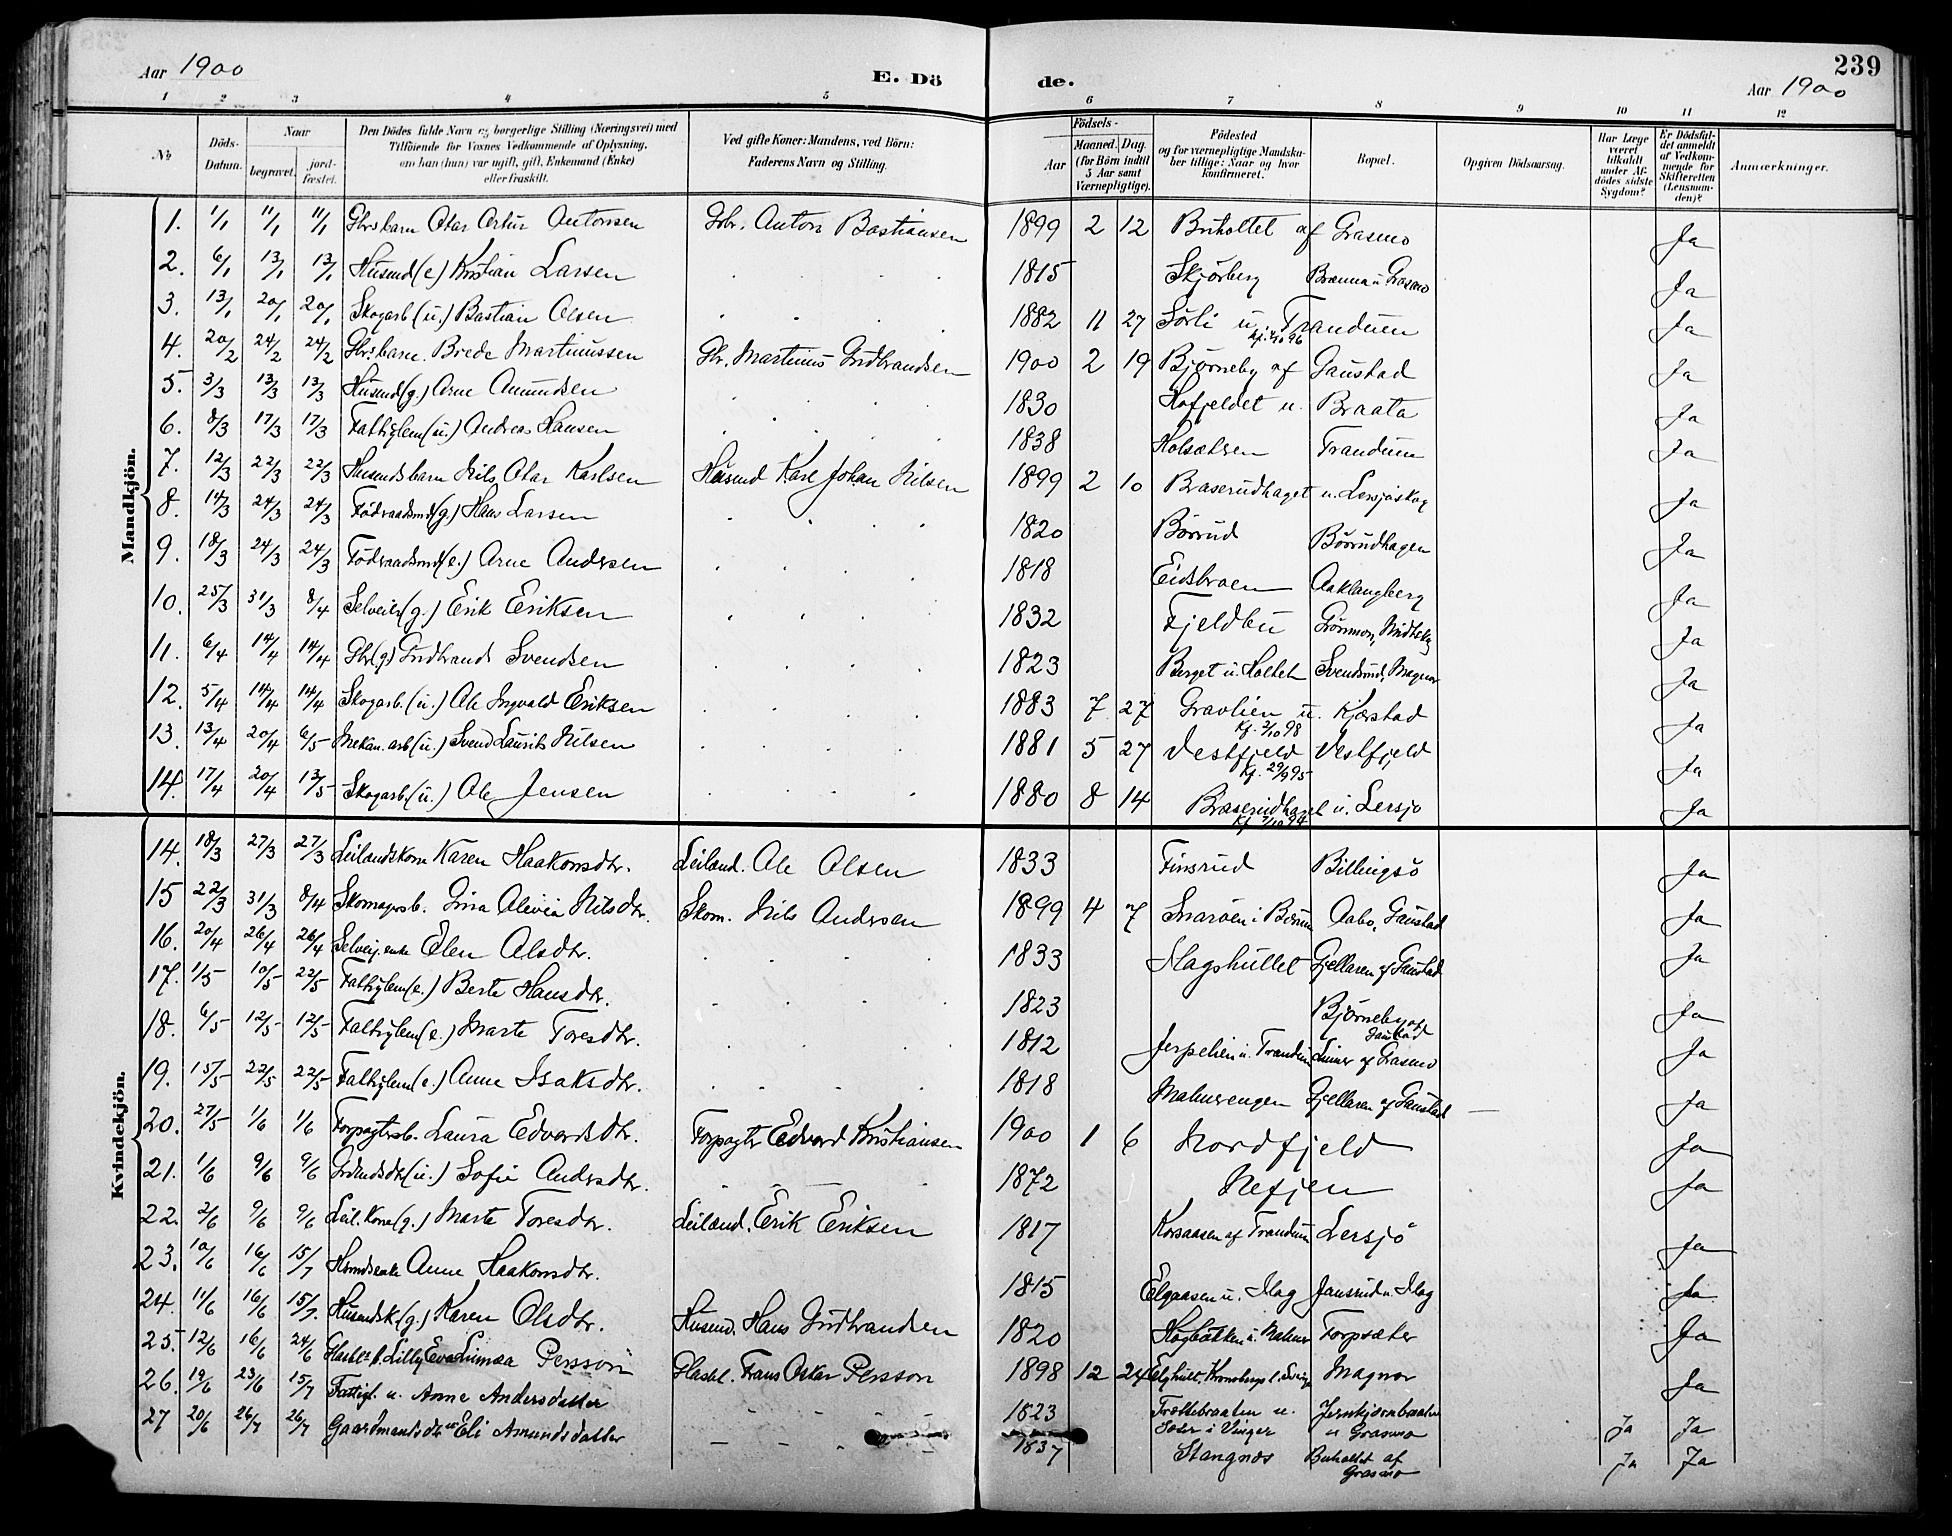 Aar 1900 E. Dö de. Aar 1900 239
1 2 3 4 5 6 7 8 9 10 11 12
No Döds-Datum. Naar begravet. jord-fæstet. Den Dödes fulde Navn og borgerlige Stilling (Næringsvei) med Tilföiende for Voxnes Vedkommende af Oplysning, om han (hun) var ugift, gift, Enkemand (Enke) eller fraskilt. Ved gifte Koner: Mandens, ved Börn: Faderens Navn og Stilling. Födsels- Aar Maaned. Dag. (for Börn indtil 5 Aar samt Værnepligtige). Födested og for værnepligtige Mandskaber tillige: Naar og hvor konfirmeret. Bopæl. Opgiven Dödsaarsag. Har Læge været tilkaldt under Afdödes sidste Sygdom? Er Dödsfaldet anmeldt af Vedkommende for Skifteretten (Lensmanden)? Anmærkninger.
Mandkjön.
1. 1/1 11/1 11/1 Gbrsbarn Otar Artur Antonsen Gbr. Anton Bastiansen 1899 2 12 Buholtet af Grasmo Ja
2. 6/1 13/1 13/1 Husmd (e) Kristian Larsen 1815 Skjörberg Brænna u. Grasmo Ja
3. 13/1 20/1 20/1 Skogarb. (u.) Bastian Olsen 1882 11 27 Sörli u. Trandum Ja
4. 20/2 24/2 24/2 Gbrsbarn. Brede Martinussen Gbr. Martinus Gudbrandsen 1900 2 19 Björneby af Gaustad Ja
5. 3/3 13/3 13/3 Husmd (g.) Arne Amundsen 1830 Hofjeldet u. Braata Ja
6. 8/3 17/3 17/3 Fattiglem (u.) Andreas Hansen 1838 Holsætren Trandum Ja
7. 12/3 22/3 22/3 Husmdsbarn Nils Otar Karlsen Husmd Karl Johan Nilsen 1899 2 10 Braserudhaget u. Lersjöskog Ja
8. 14/3 24/3 24/3 Födraadsmd (g.) Hans Larsen 1820 Börrud Börrudhagen Ja
9. 18/3 24/3 24/3 Födraadsmd (e.) Arne Andersen 1818 Eidsbraen Aaklangberg Ja
10. 25/3 31/3 8/4 Selveier (g.) Erik Eriksen 1832 Fjeldbu Grönmo, Midtskog Ja
11. 6/4 14/4 14/4 Gbr (g.) Gudbrand Svendsen 1823 Berget u. Holtet Svendsrud, Magnor Ja
12. 5/4 14/4 14/4 Skogarb. (u.) Ole Ingvald Eriksen 1883 7 27 Gravlien u. Kjerstad Kf. 2/10 98 Ja
13. 13/4 20/4 6/5 Mekan. arb (u.) Svend Laurits Nilsen 1881 5 27 Vestfjeld Vestfjeld Kf. 29/9 95 Ja
14. 17/4 20/4 13/5 Skogarb (u.) Ole Jensen 1880 8 14 Braserudhaget u. Lersjö Ja
Kvindekjön.
14. 18/3 27/3 27/3 Leilandskone Karen Haakonsdtr. Leilænd. Ole Olsen 1833 Finsrud Billingsö Ja
15 22/3 31/3 8/4 Skomagersb. Gina Olivia Nilsdtr. Skom. Nils Andersen 1899 4 7 Snaröen i Bærum Aabo, Gaustad Ja
16. 20/4 26/4 26/4 Selvej. enke Elen Olsdtr. 1833 Slagshultet Gjellaren af Gaustad Ja
17. 1/5 10/5 22/5 Fattiglem (e.) Berte Hansdtr. 1823 Björneby af Gaustad Ja
18. 6/5 12/5 12/5 Fattiglem (e.) Marte Toresdtr. 1812 Jerpelien u. Trandum Linner af Grasmo Ja
19. 15/5 22/5 22/5 Fattiglem (e.) Anne Isaksdtr. 1818 Malmerengen Gjellaren af Gaustad Ja
20. 27/5 1/6 1/6 Forpagtersb. Laura Edvardsdtr. Forpagter Edvard Kristiansen 1900 1 6 Nordfjeld Ja
21. 1/6 9/6 9/6 Grdmdsdtr (u.) Sofie Andersdtr. 1872 Nefjen Ja
22. 2/6 9/6 9/6 Leil. Kone (g.) Marte Toresdtr. Leilænd. Erik Eriksen 1817 Korsaasen af Trandum Lersjö Ja
23. 10/6 16/6 15/7 Husmdsenke Anne Haakonsdtr. 1815 Elgaasen u. Mag Jansrud u. Mag Ja
24. 11/6 16/6 15/7 Husmdsk. (g.) Karen Olsdtr. Husmd. Hans Gudbrandsen 1820 Högbakken u. Malmer Forpsæter Ja
25. 12/6 16/6 24/6 Glasbl. b. Lilly Eva Linnea Persson Glasbl. Frans Oskar Persson 1898 12 24 Elghult, Kronobergs l. Sverige Magnor Ja
26. 19/6 23/6 15/7 Fattigl. u. Anne Andersdatter 1823 Trættebraaten u. Soter i Vinger Jernkjernbraaten u Grasmo Ja Ja
27 20/6 26/7 26/7 Gaardmandsdtr. u Eli Amundsdatter 1837 Stangnæs Buholtet af Grasmo Ja Ja